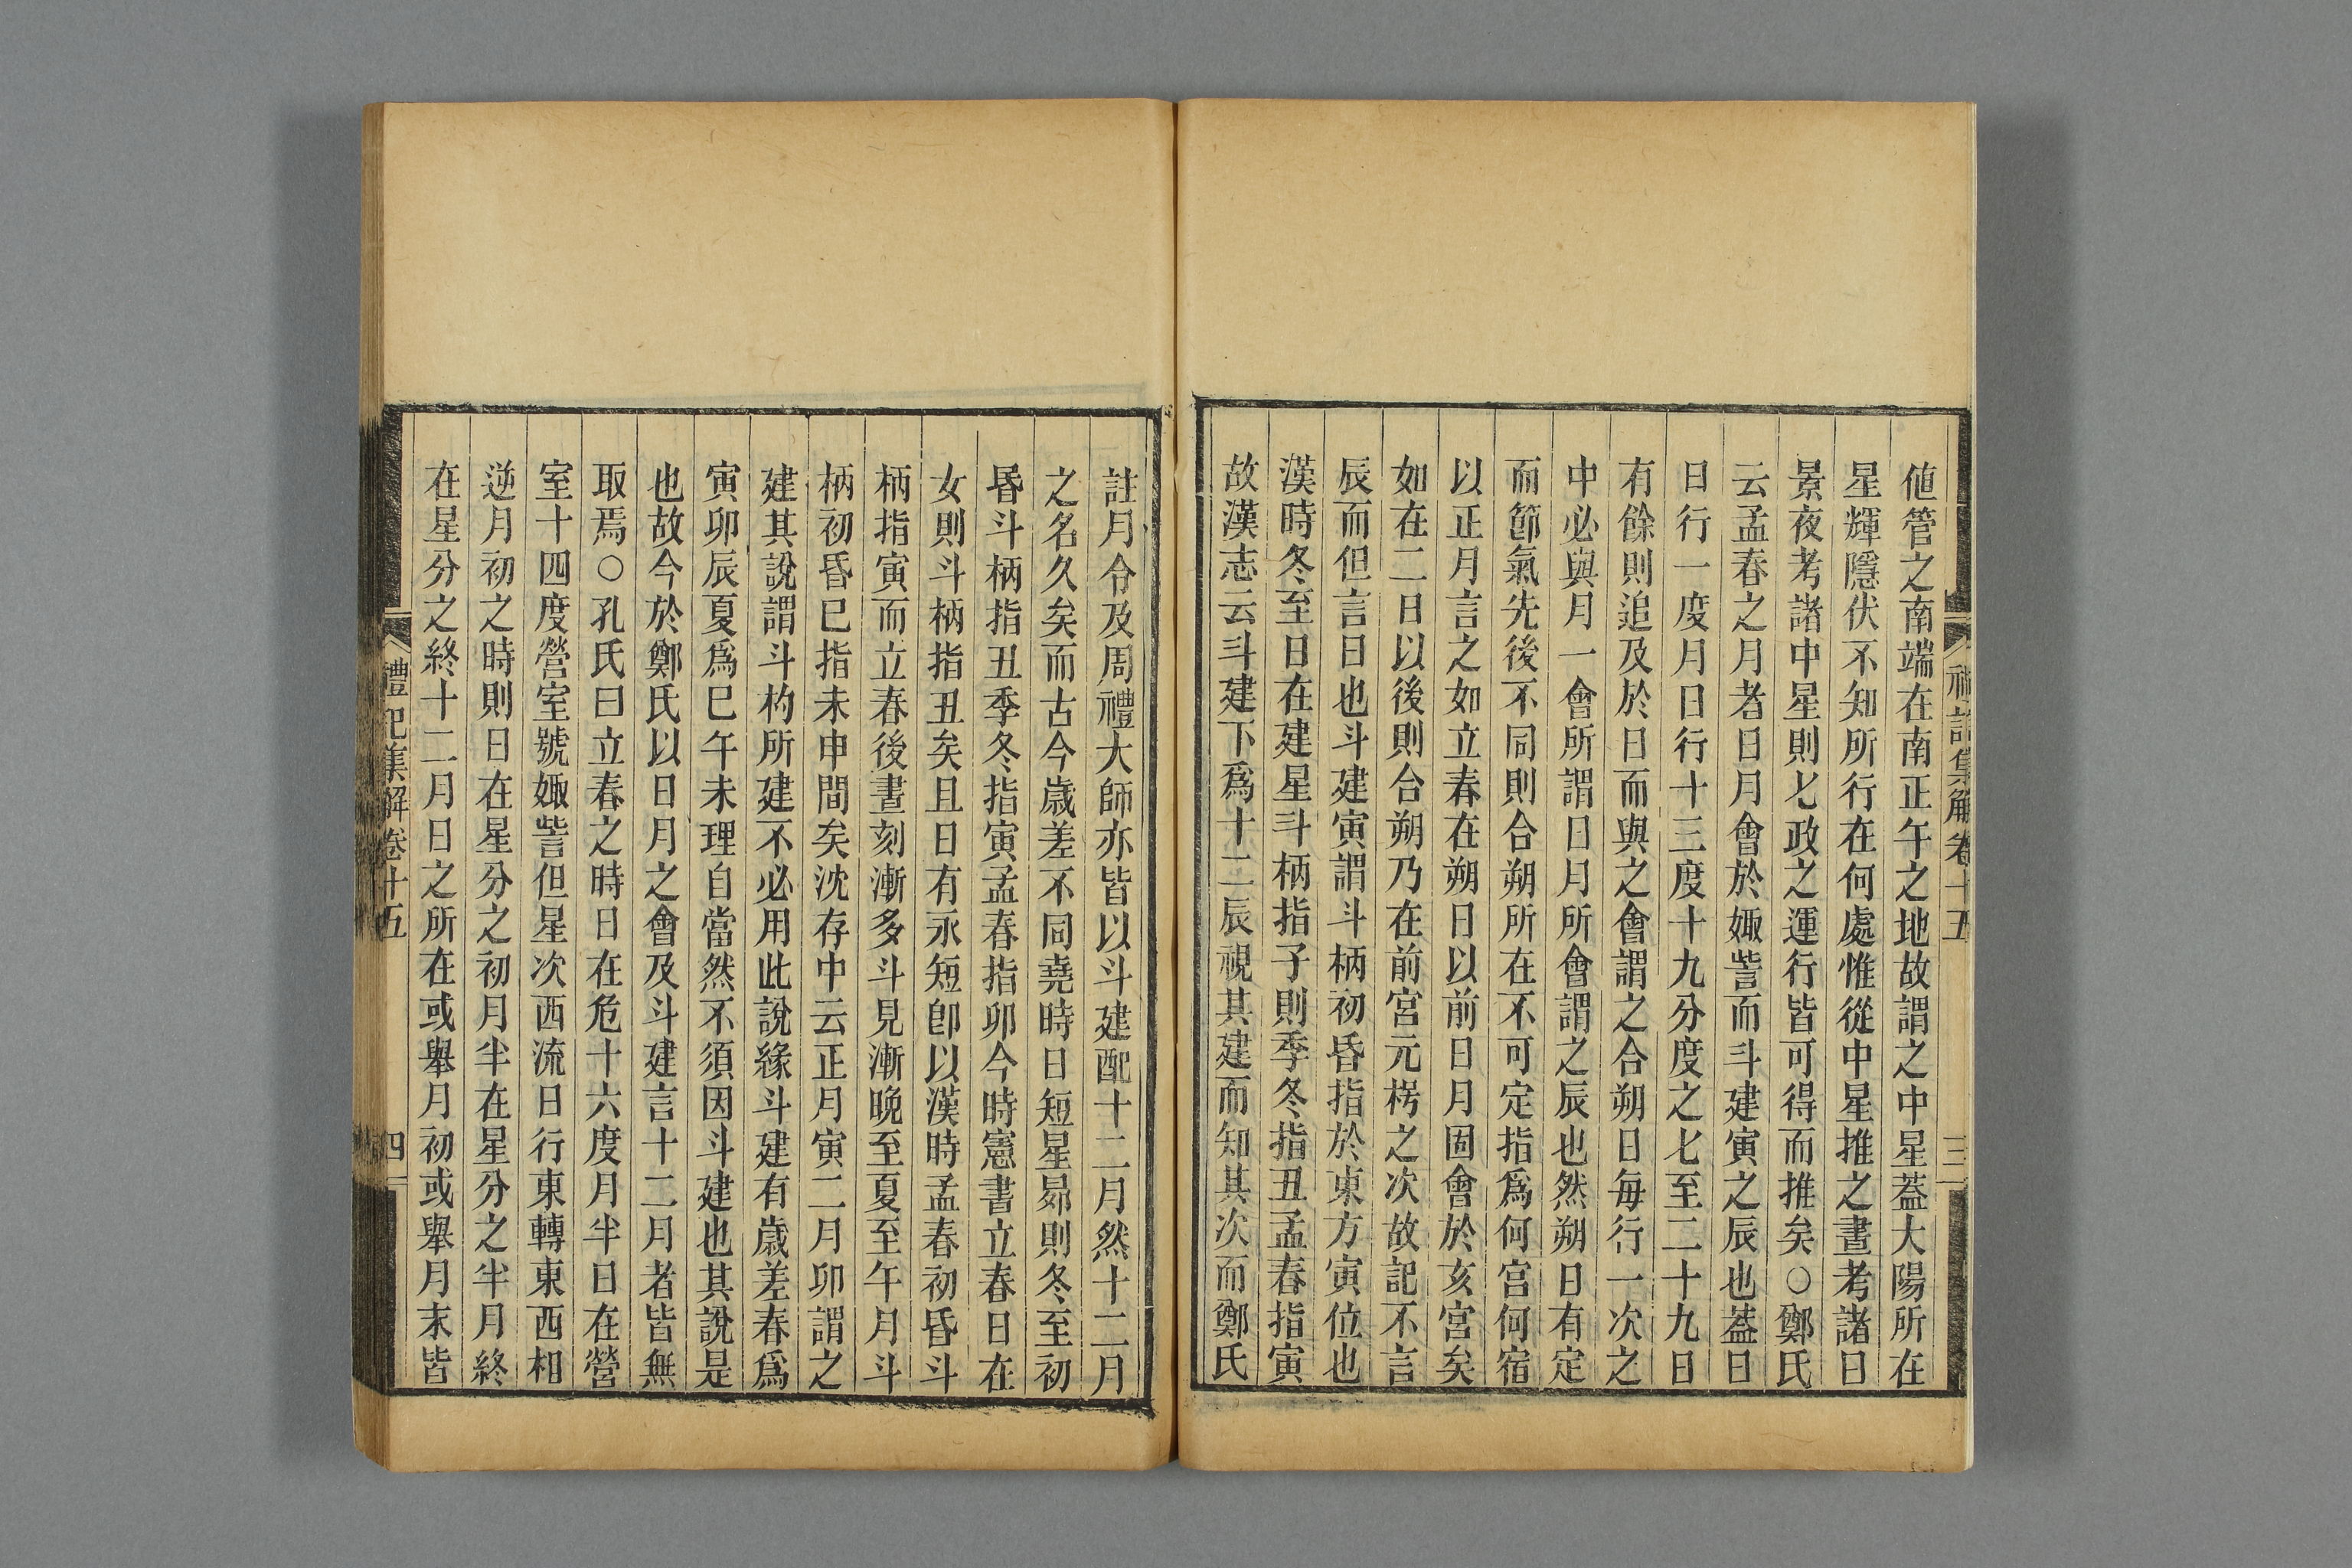 禮記集解卷十五
三
値管之南端在南正午之地故謂之中星葢大陽所在
星輝隱伏不知所行在何處惟從中星推之晝考諸日
景夜考諸中星則七政之運行皆可得而推矣○鄭氏
云孟春之月者日月會於娵訾而斗建寅之辰也葢日
日行一度月日行十三度十九分度之七至二十九日
有餘則追及於日而與之會謂之合朔日每行一次之
中必與月一會所謂日月所會謂之辰也然朔日有定
而節氣先後不同則合朔所在不可定指爲何宮何宿
以正月言之如立春在朔日以前日月固會於亥宮矣
如在二日以後則合朔乃在前宮元枵之次故記不言
辰而但言日也斗建寅謂斗柄初昏指於東方寅位也
漢時冬至日在建星斗柄指子則季冬指丑孟春指寅
故漢志云斗建下爲十二辰視其建而知其次而鄭氏
註月令及周禮大師亦皆以斗建配十二月然十二月
之名久矣而古今歲差不同堯時日短星昴則冬至初
昏斗柄指丑季冬指寅孟春指卯今時憲書立春日在
女則斗柄指丑矣且日有永短卽以漢時孟春初昏斗
柄指寅而立春後晝刻漸多斗見漸晚至夏至午月斗
柄初昏巳指未申間矣沈存中云正月寅二月卯謂之
建其說謂斗杓所建不必用此說緣斗建有歲差春爲
寅卯辰夏爲巳午未理自當然不須因斗建也其說是
也故今於鄭氏以日月之會及斗建言十二月者皆無
取焉○孔氏曰立春之時日在危十六度月半日在營
室十四度營室號娵訾但星次西流日行東轉東西相
逆月初之時則日在星分之初月半在星分之半月終
在星分之終十二月日之所在或舉月初或舉月末皆
禮記集解卷十五
四